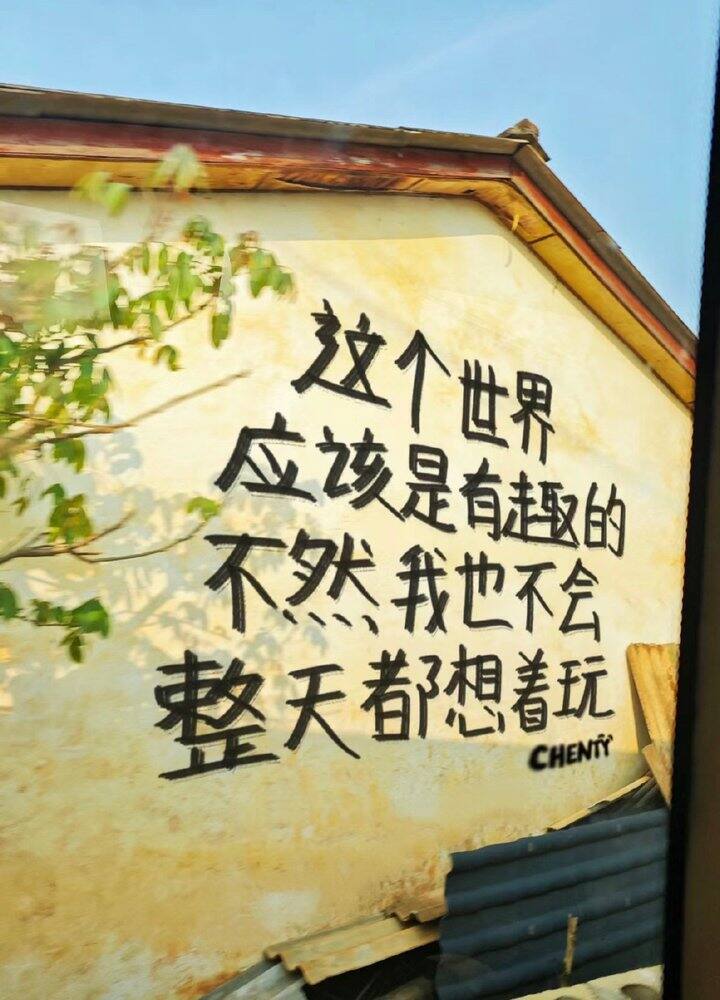 这个世界
应该是有趣的
不然我也不会
整天都想着玩
CHENTY